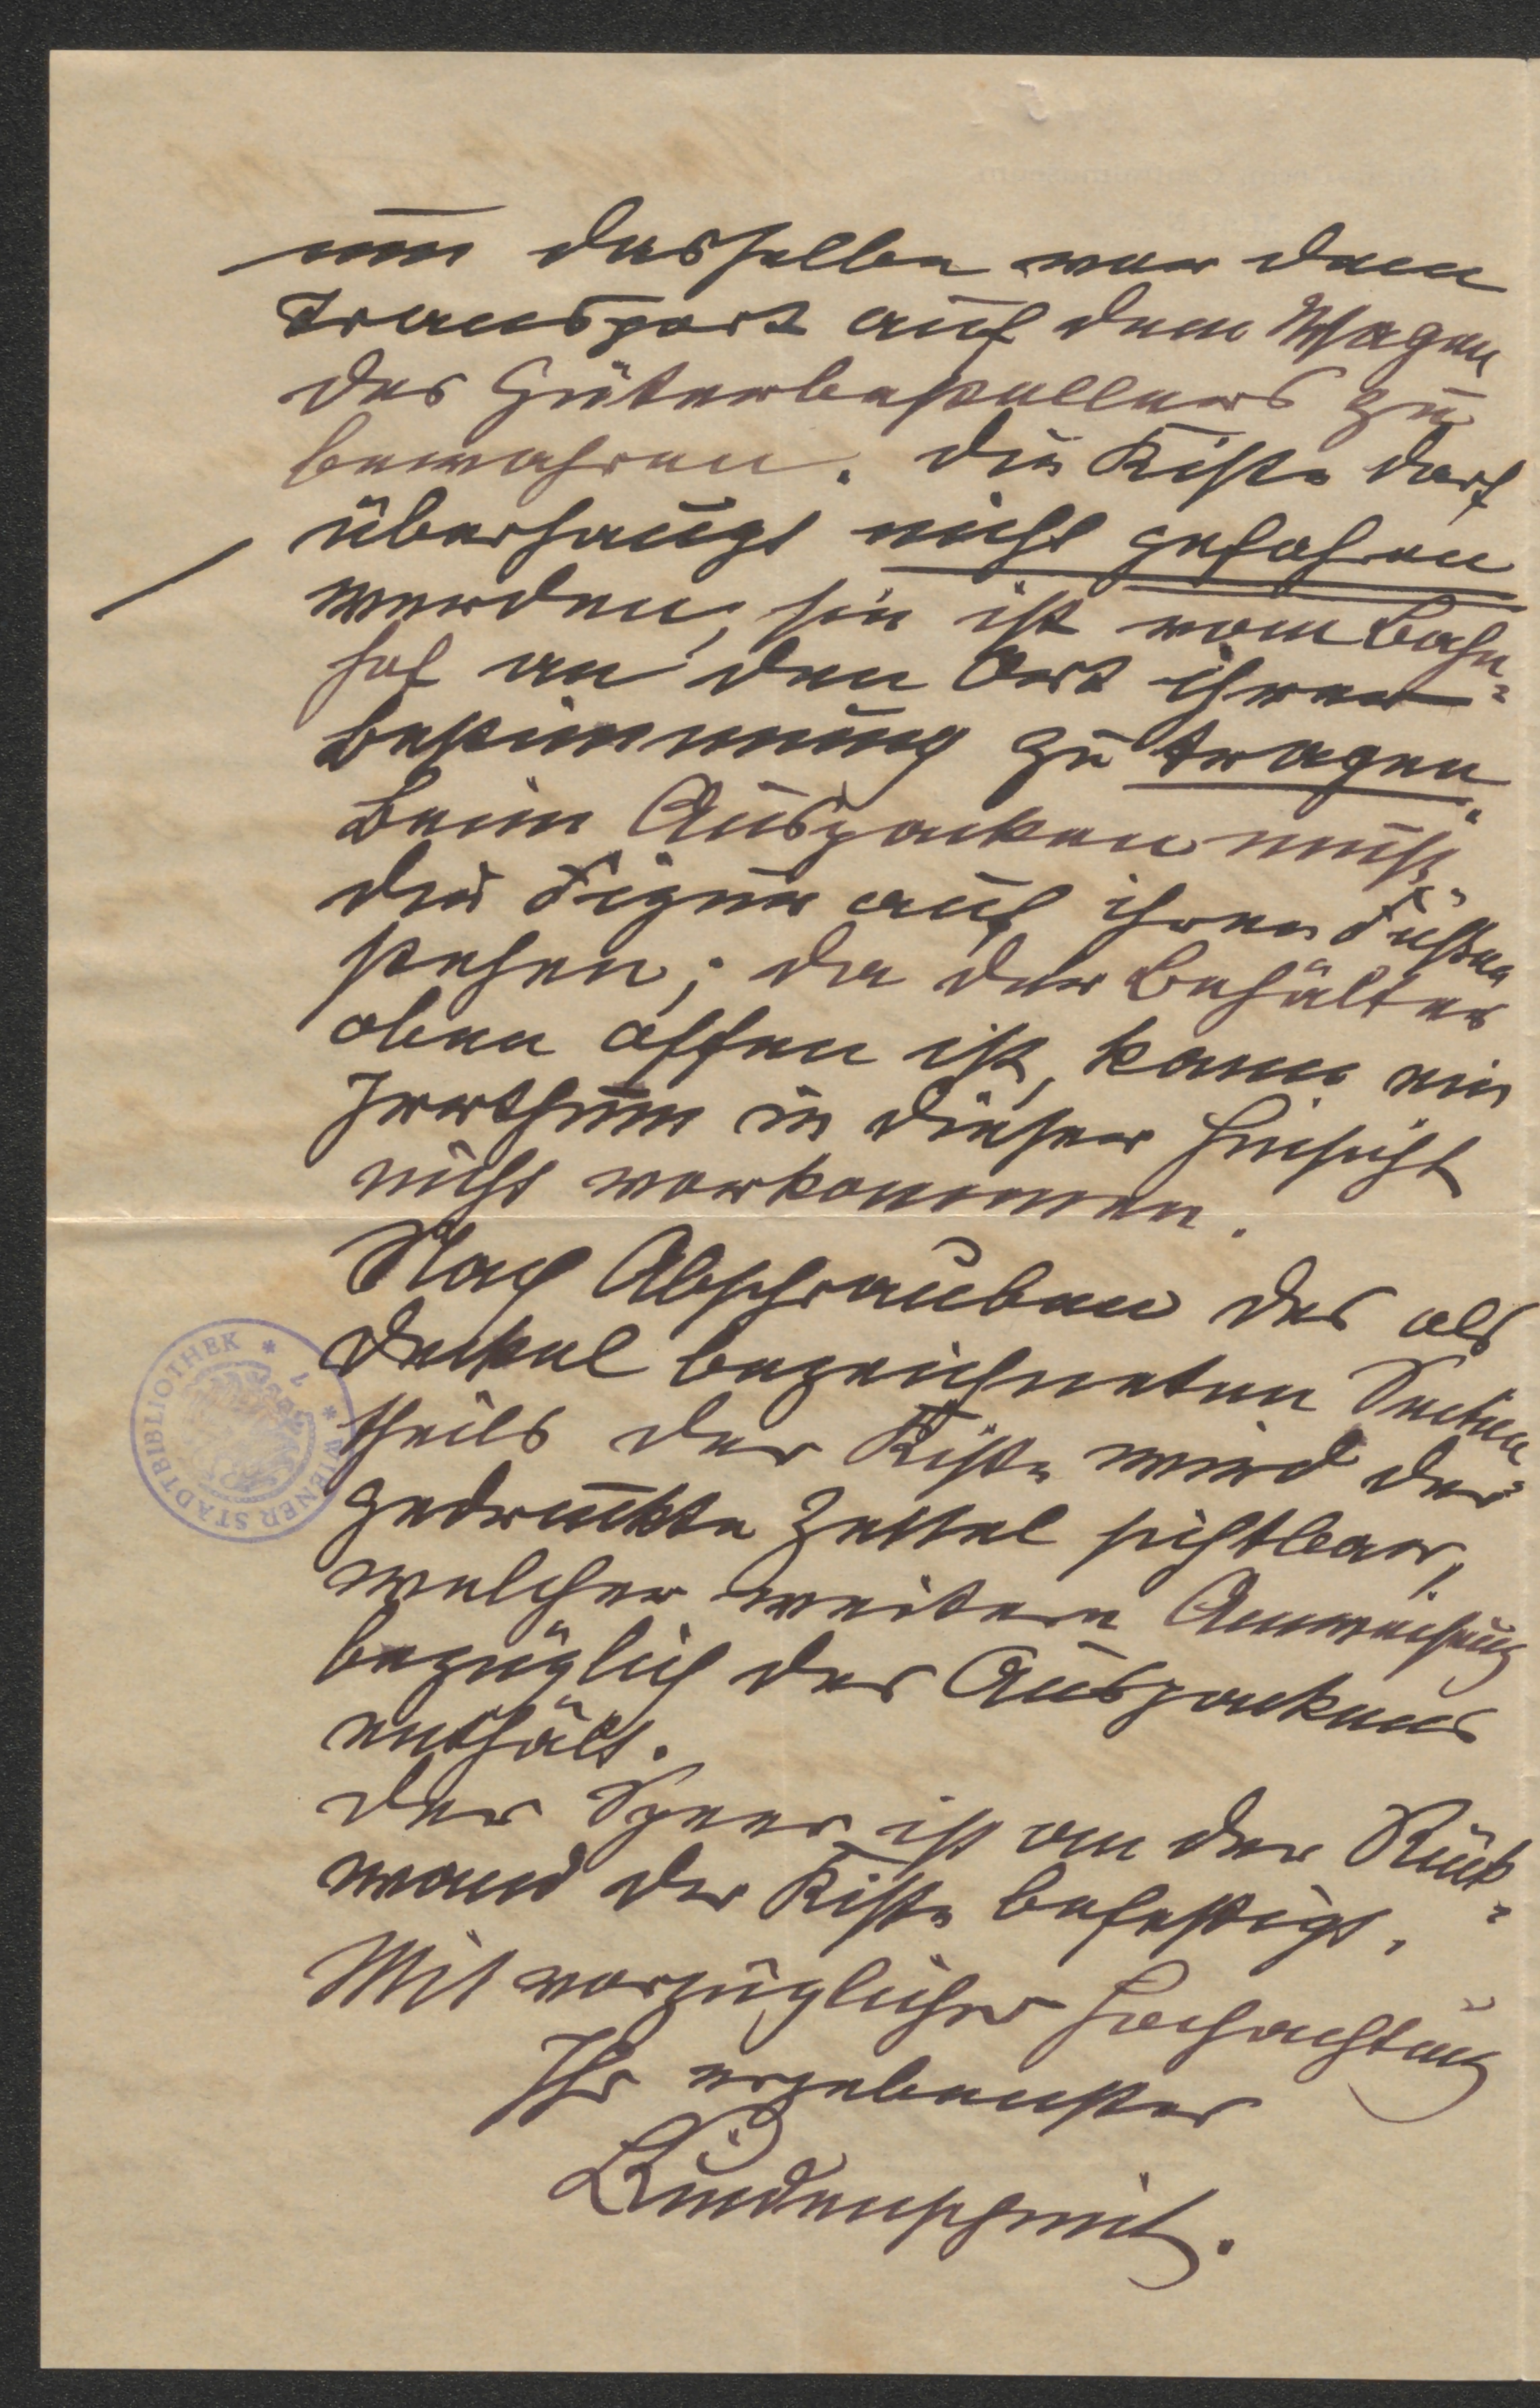 um dasselbe vor dem
Transport auf dem Wagen
des Güterbestellers zu
bewahren. Die Kiste darf
überhaupt nicht gefahren
werden, sie ist vom Bahn-
hof an den Ort ihrer
Bestimmung zu tragen.
Beim Auspacken muß
die Figur auf ihren Füßen
stehen; da der Behälter
oben offen ist, kann ein
Irrthum in dieser Hinsicht
nicht vorkommen.
Nach Abschrauben des als
Deckel bezeichneten Seiten-
theils der Kiste wird der
gedruckte Zettel sichtbar,
welcher weitere Anweisung
bezüglich des Auspackens
enthält.
Der Speer ist an der Rück-
wand der Kiste befestigt.
Mit vorzüglicher Hochachtung
Ihr ergebenster
Lindenschmit.
WIENER STADTBIBLIOTHEK